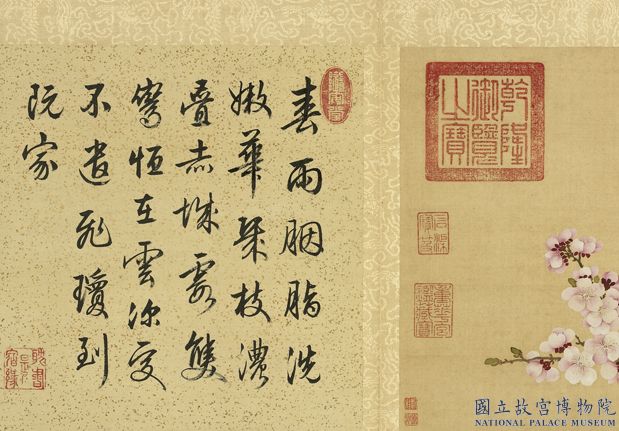 春雨胭脂洗
嫩華繁枝濃
疊赤城霞雙
鸞恒在雲深處
不遣飛瓊到
阮家
乾隆
御覽
之寶
石渠
寶笈
重華宮
鑑藏寶
國立故宮博物院
NATIONAL PALACE MUSEUM